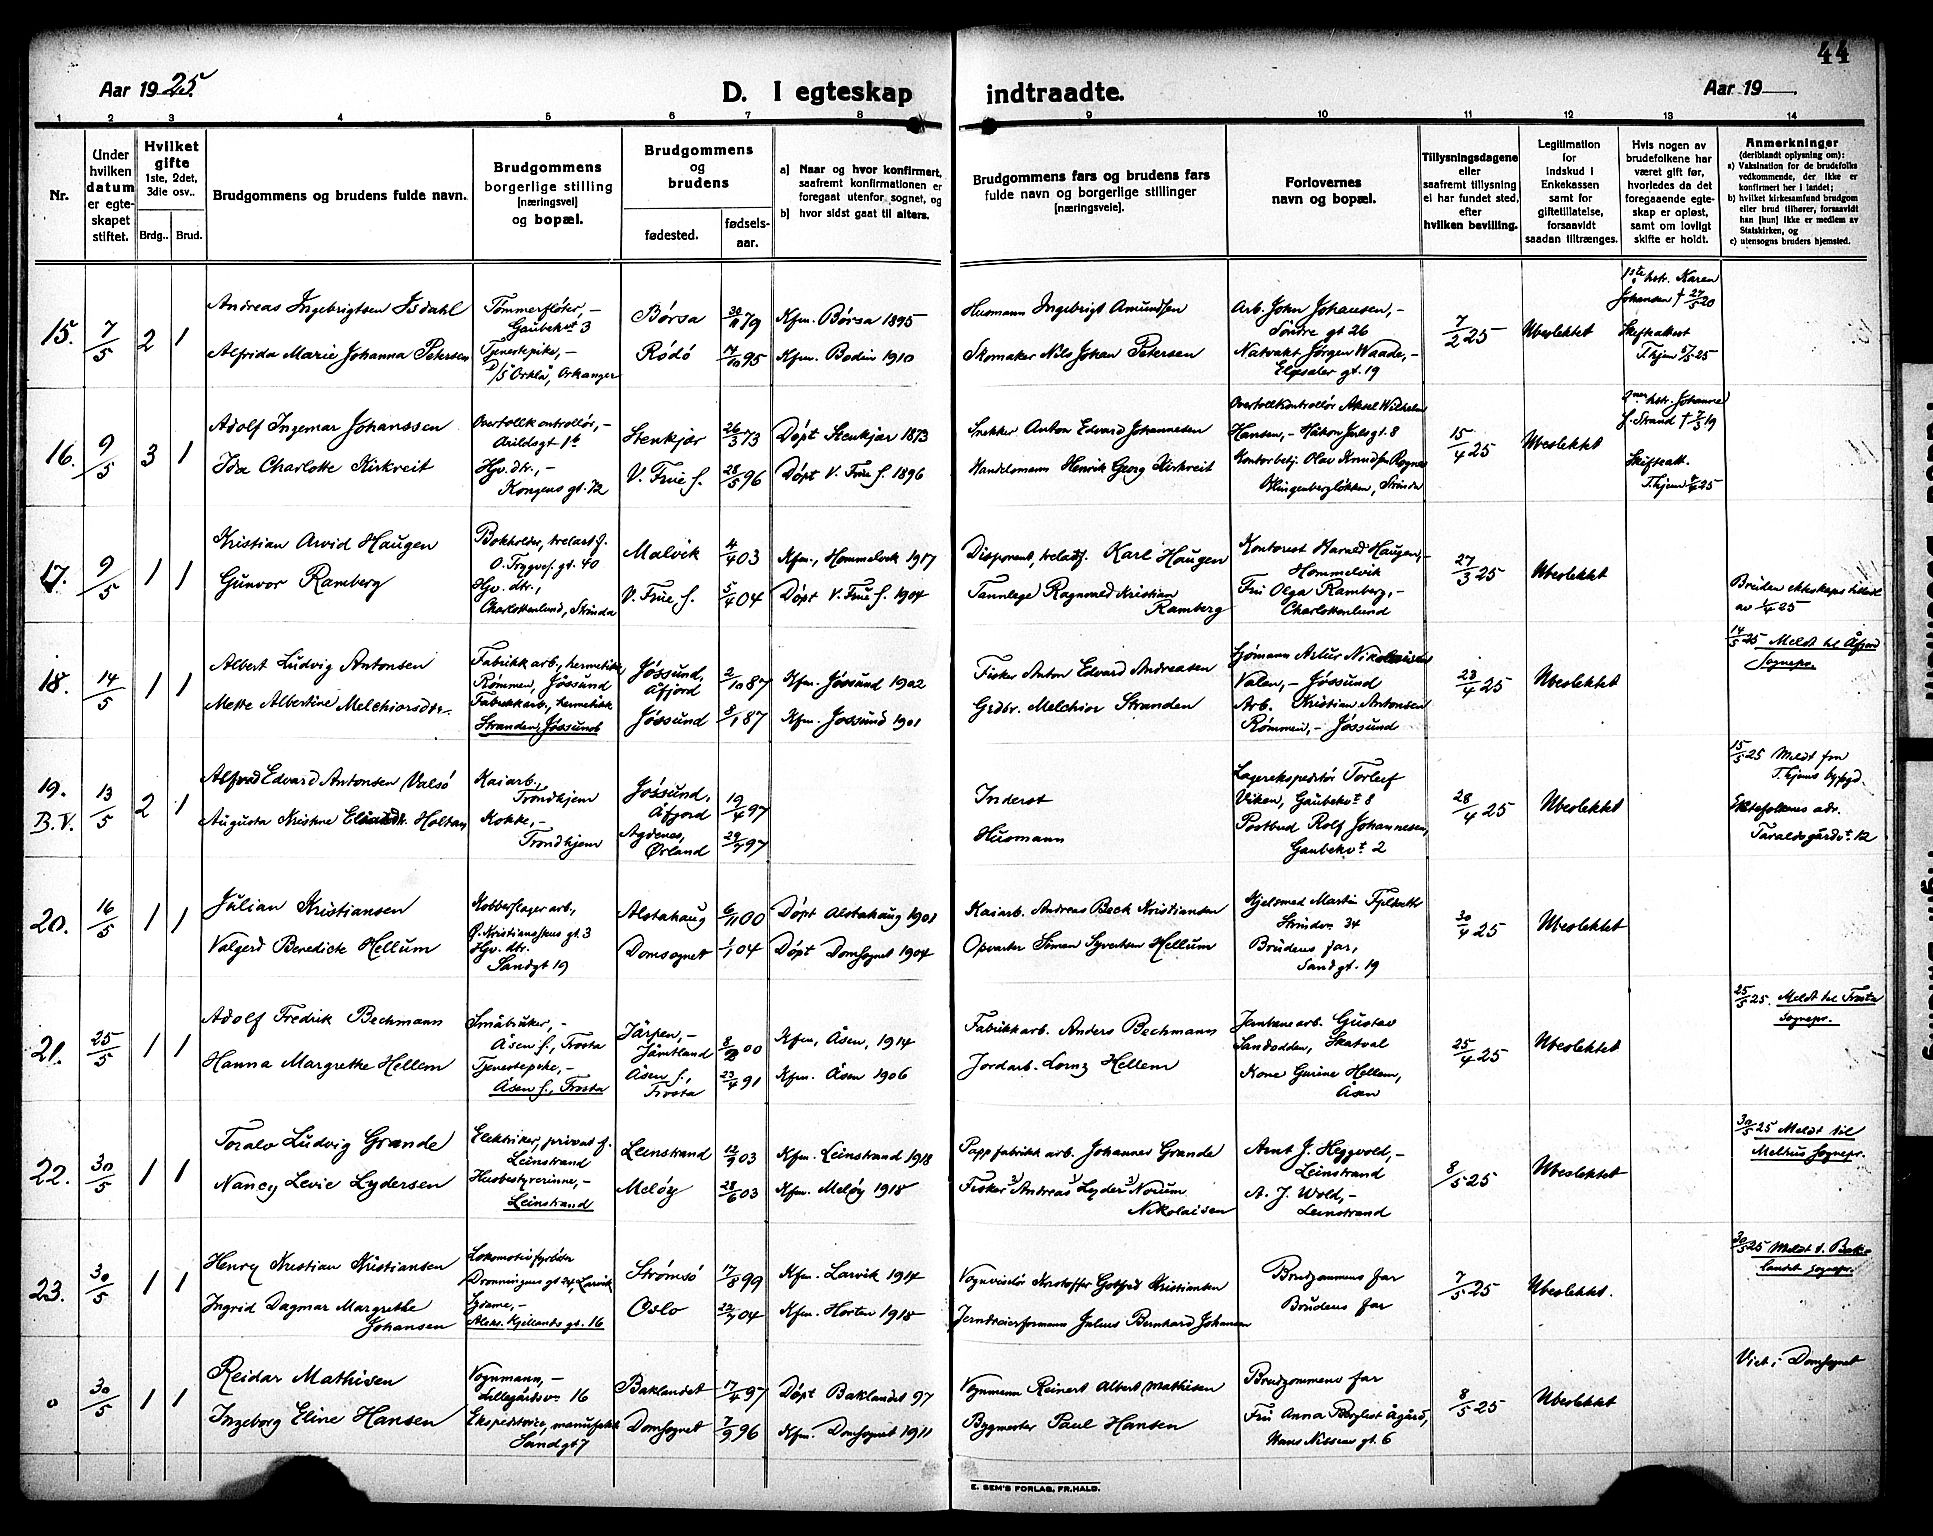 44
Aar 1925.
D. I egteskap indtraadte.
Aar 19
1 2 3 4 5 6 7 8 9 10 11 12 13 14
Nr.
Under hvilken datum er egteskapet stiftet.
Hvilket gifte 1ste, 2det, 3die osv..
Brdg..
Brud.
Brudgommens og brudens fulde navn.
Brudgommens borgerlige stilling [næringsvei] og bopæl.
Brudgommens og brudens
fødested.
fødsels-aar.
a) Naar og hvor konfirmert, saafremt konfirmationen er foregaat utenfor sognet, og
b) hvor sidst gaat til alters.
Brudgommens fars og brudens fars fulde navn og borgerlige stillinger [næringsveie].
Forlovernes navn og bopæl.
Tillysningsdagene eller saafremt tillysning ei har fundet sted, efter hvilken bevilling.
Legitimation for indskud i Enkekassen samt for giftetillatelse, forsaavidt saadan tiltrænges.
Hvis nogen av brudefolkene har været gift før, hvorledes da det foregaaende egteskap er opløst, samt om lovligt skifte er holdt.
Anmerkninger
(deriblandt oplysning om):
a) Vaksination for de brudefolks vedkommende, der ikke er konfirmert her i landet;
b) hvilket kirkesamfund brudgom eller brud tilhører, forsaavidt han [hun] ikke er medlem av Statskirken, og
c) utensogns bruders hjemsted.
15. 7/5 2 1
Andreas Ingebrigtsen Isdahl
Tømmerfløter,-
Gaubekvt 3
Børsa 30/11 79
Kfm. Børsa 1895
Husmann Ingebrigt Amundsen
Arb. John Johansen,-
Søndre gt 26
7/2 25
Ubeslektet
1ste hstr. Karen
Johansen † 27/5 20
Alfrida Marie Johanna Petersen
Tjenestepike,-
D/S Orkla, Orkanger
Rødø 17/10 95
Kfm. Bodin 1910
Skomaker Nils Johan Petersen
Natvakt Jørgen Waade,-
Elgsæter gt. 19
Skifteattest
T.hjem 6/5 25
16. 9/5 3 1
Adolf Ingemar Johanssen
Overtollkontrollør,-
Arildsgt 1b
Stenkjær 26/3 73
Døpt Stenkjær 1873
Snekker Anton Edvard Johannesen
Overtollkontrollør Aksel Wilhelm
Hansen,- Håkon Jarlsgt. 8
15/4 25
Ubeslektet
2nen hstr. Johanne
f. Strand † 7/3 19
Ida Charlotte Kirkreit
Hjv. dtr.,-
Kongens gt. 72
V. Frue s. 28/5 96
Døpt V. Frue s. 1896
Handelsmann Henrik Georg Kirkreit
Kontorbetj. Olav Knudsen Rognes
Klingenbergløkken, Strinda
Skifteatt.
T.hjem 25
17. 9/5 1 1
Kristian Arvid Haugen
Bokholder, trelastf.
O. Trygves. gt. 40
Malvik 4/4 03
Kfm, Hommelvik 1917
Disponent, trelastf. Karl Haugen
Kontorist Harald Haugen,-
Hommelvik
27/3 25
Ubeslektet
Gunvor Ramberg
Hjv. dtr.,
Charlottenlund, Strinda
V. Frue s. 5/4 04
Døpt V. Frue s. 1904
Tannlege Ragnvald Kristian
Ramberg
Fru Olga Ramberg,-
Charlottenlund
Bruden ekteskapstillatel
av 1/4 25
18. 14/5 1 1
Albert Ludvig Antonsen
Fabrikkarb., hermetikk
Rømmen, Jøssund
Jøssund, Åfjord 2/10 87
Kfm. Jøssund 1902
Fisker Anton Edvard Andreasen
Sjømann Artur Nikolaisen
Valen,- Jøssund
23/4 25
Ubeslektet
14/5 25 Meldt til Åfjord
Sognepr.
Mette Albertine Melchiorsdtr.
Fabrikkarb., hermetikk
Stranden, Jøssund
Jøssund 3/1 87
Kfm. Jossund 1901
Grdbr. Melchior Stranden
Arb. Kristian Antonsen
Rømmen,- Jøssund
19. B.V. 13/5 2 1
Alfred Edvard Antonsen Valsø
Kaiarb.,
Trondhjem
Jøssund, Åfjord 19/4 97
Inderst
Lagerekspeditør Torleif
Viken, Gaubekvt 8
28/4 25
Ubeslektet
15/5 25 Meldt fra
T.hjems byfogd.
Augusta Kristine Holtan
Kokke,-
Trondhjem
Agdenes, Ørland 29/7 97
Husmann
Postbud Rolf Johannesen,
Gaubekvt 2
Ektefolkenes adr.
Taraldsgårdsvt 12
20. 16/5 1 1
Julian Kristiansen
Kobberslager arb.,
Ø. Kristianstens gt. 3
Alstahaug 6/11 00
Døpt Alstahaug 1901
Kaiarb. Andreas Beck Kristiansen
Gjelsmed Martin
Strindv. 34
30/4 25
Ubeslektet
Valgerd Benedicte Hellum
Hjv. dtr.
Sandgt 19
Domsognet 1/1 04
Døpt Domsognet 1904
Opvarter Simon Syvertsen Hellum
Brudens far,
Sandgt. 19
21. 25/5 1 1
Adolf Fredrik Bechmann
Småbruker,-
Åsen s., Frosta
Järpen,- Jämtland 8/2 00
Kfm, Åsen, 1914
Fabrikkarb. Anders Bechmann
Jernbanearb. Gustav
Sandodden, Skatval
25/4 25
Ubeslektet
25/5 25. Meldt til Frosta
Sognepr.
Hanna Margrethe Hellem
Tjenestepike,-
Åsen s., Frosta
Åsen s., Frosta 23/4 91
Kfm. Åsen 1906
Jordarb. Lornz Hellem
Kone Gurine Hellem,
Åsen
22. 30/5 1 1
Toralv Ludvig Grande
Elektriker, privat f.
Leinstrand
Leinstrand 12/9 03
Kfm. Leinstrand 1918
Pappfabrikk arb. Johannes Grande
Arnt J. Heggvold,-
Leinstrand
8/5 25
Ubeslektet
30/5 25 Meldt til
Melhus Sognepr.
Nancy Levie Lydersen
Husbestyrerinne,-
Leinstrand
Meløy 28/6 03
Kfm. Meløy 1918
Fisker Andreas Lyder Norum
Nikolaisen
A. J. Wold,-
Leinstrand
23. 30/5 1 1
Henry Kristian Kristiansen
Lokomotivfyrbøter
Dronningens gt 24, Larvik
Strømsø 17/8 99
Kfm. Larvik 1914
Vognvisitør Kristoffer Gotfred Kristiansen
Brudgommens far
7/5 25
Ubeslektet.
30/5 25 Meldt t. Bak-
landet sognepr.
Ingrid Dagmar Margrethe
Johansen
Sydame,-
Aleks. Kjellands gt. 16
Oslo 22/7 04
Kfm. Horten 1918
Jerndreierformann Julius Bernhard Johansen
Brudens far
0 30/5 1 1
Reidar Mathisen
Vognmann,-
Lillegårdsv. 16
Baklandet 17/4 97
Døpt Baklandet 97
Vognmann Reinert Albert Mathisen
Brudgommens far
8/5 25
Ubeslektet
Viet i Domsognet
Ingeborg Eline Hansen
Ekspeditrice, manufakt.
Sandgt 7
Domsognet 7/9 96
Kfm. Domsognet 1911
Byggmester Paul Hansen
Fru Anna Bergliot Ågård,
Hans Nissens gt. 6
E. SEM'S FORLAG, FR.HALD.